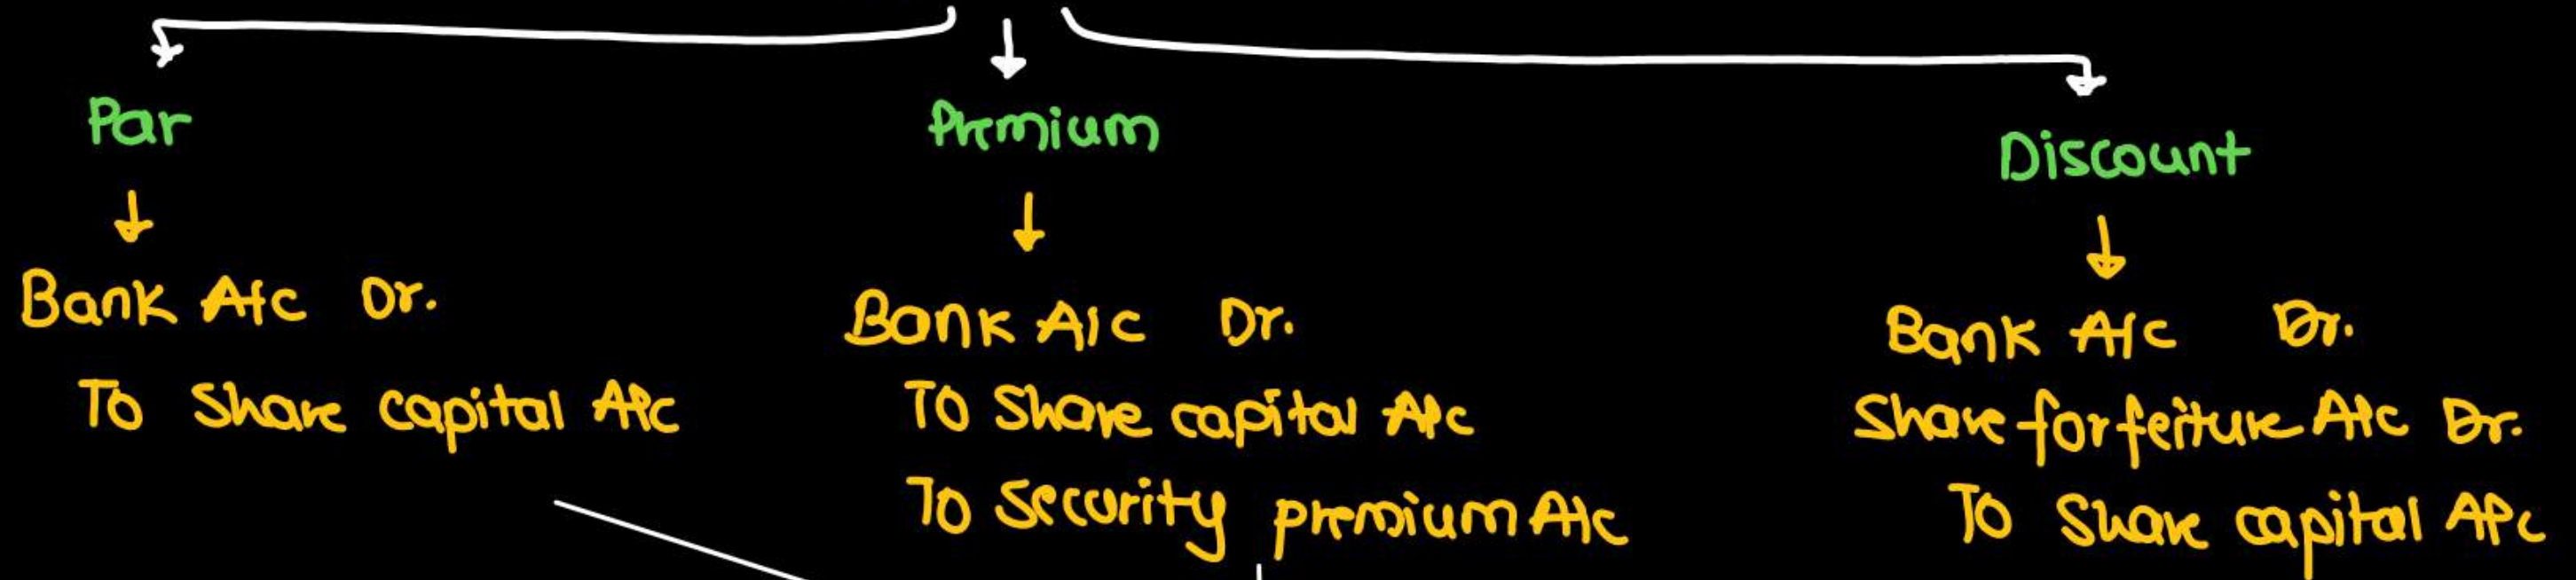 Par
Bank A/c Dr.
To Share capital A/c
Premium
Bank A/c Dr.
To Share capital A/c
To Security premium A/c
Discount
Bank A/c Dr.
Share forfeiture A/c Dr.
To Share capital A/c